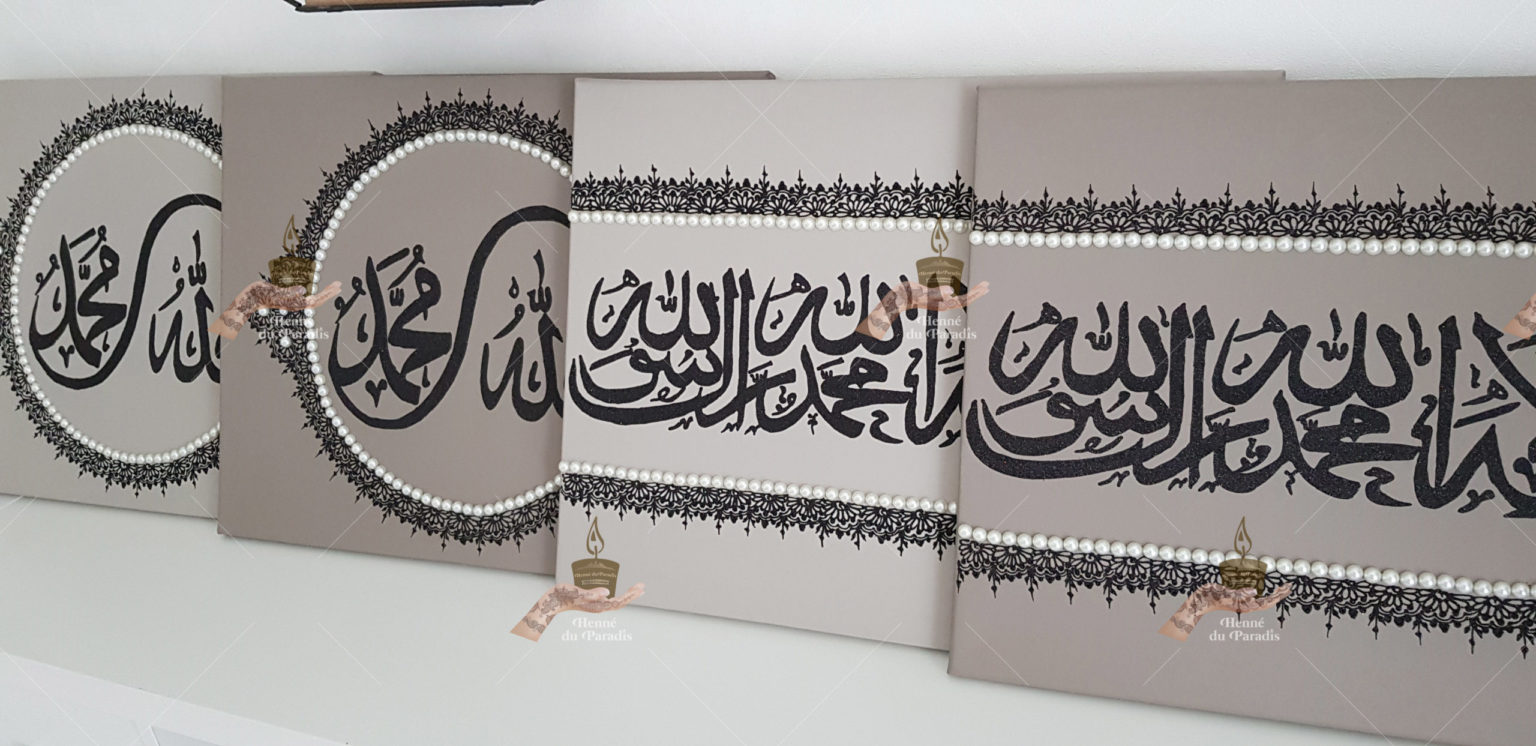 الله محمد
الله محمد
الله محمد رسول الله
الله محمد رسول الله
Henné
du Paradis
Henné
du Paradis
Henné du Paradis
Henné
du Paradis
Henné
du Paradis